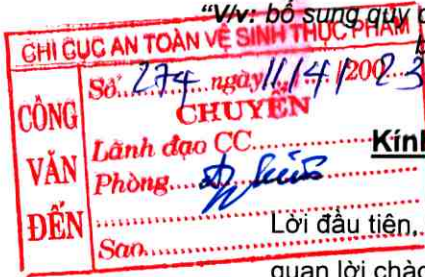 "V/v: bổ sung quy
CHI CỤC AN TOÀN VỆ SINH THỰC PHẨM
CÔNG VĂN ĐẾN
Số: 274 ngày 11/4/2023
CHUYỂN
Lãnh đạo CC............
Kính
Phòng......
Lời đầu tiên,
Sao............
quan lời chào